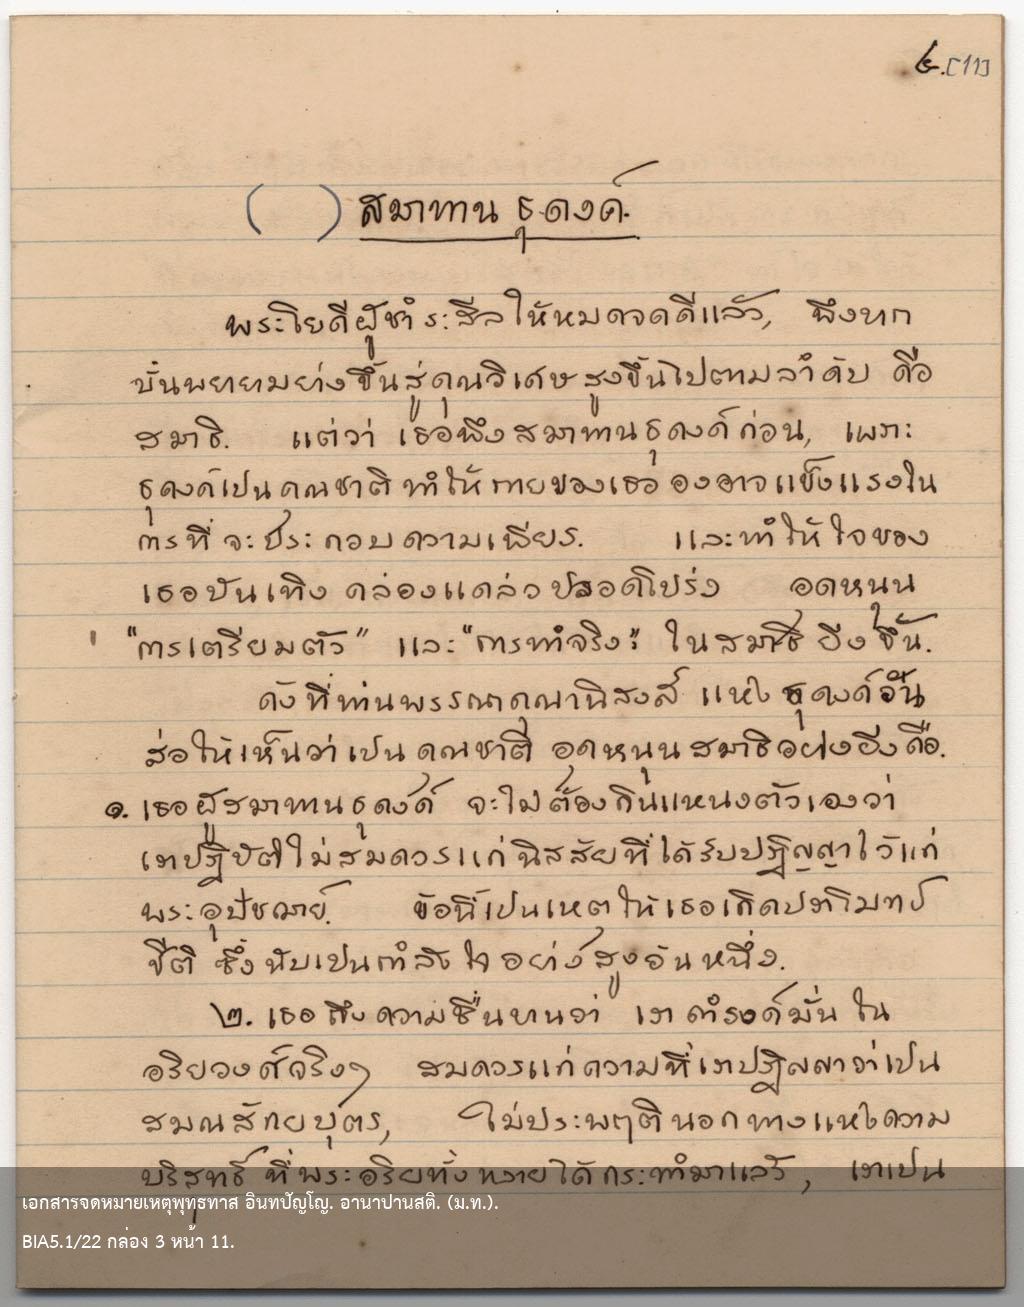 ๖.[11]
( ) สมาทาน ธุดงค์.
พระโยคีผู้ชำระสีลให้หมดจดดีแล้ว, พึงทำ
บั่นพยายามย่างขึ้นสู่คุณวิเศษสูงขึ้นไปตามลำดับ คือ
สมาธิ. แต่ว่า เธอพึงสมาทานธุดงค์ก่อน, เพราะ
ธุดงค์เปนคุณชาติทำให้กายของเธอ องอาจแข็งแรงใน
การที่จะประกอบความเพียร. และทำให้ใจของ
เธอบันเทิง คล่องแคล่วปลอดโปร่ง อดหนุน
"การเตรียมตัว" และ "การทำจริง" ในสมาธิ ยิ่งขึ้น.
ดังที่ท่านพรรณาคุณานิสงส์ แห่งธุดงค์อัน
ส่อให้เห็นว่าเปนคุณชาติ อุดหนุนสมาธิอย่างยิ่งคือ.
๑. เธอผู้สมาทานธุดงค์ จะไม่ต้องกินแหนงตัวเองว่า
เราปฏิบัติไม่สมควรแก่นิสสัยที่ได้รับปฏิญญาไว้แก่
พระอุปัชฌาย์. ข้อนี้เปนเหตุให้เธอเกิดปราโมทย์
ปีติ ซึ่งนับเปนกำลังใจอย่างสูงอันหนึ่ง.
๒. เธอถึงความชื่นบานว่า เราดำรงค์มั่นใน
อริยวงศ์จริงๆ สมควรแก่ความที่เราปฏิญญาว่าเปน
สมณสักยบุตร, ไม่ประพฤตินอกทางแห่งความ
บริสุทธิ์ ที่พระอริยทั้งหลายได้กระทำมาแล้ว, เราเปน
เอกสารจดหมายเหตุพุทธทาส อินทปัญโญ. อานาปานสติ. (ม.ท.).
BIA5.1/22 กล่อง 3 หน้า 11.